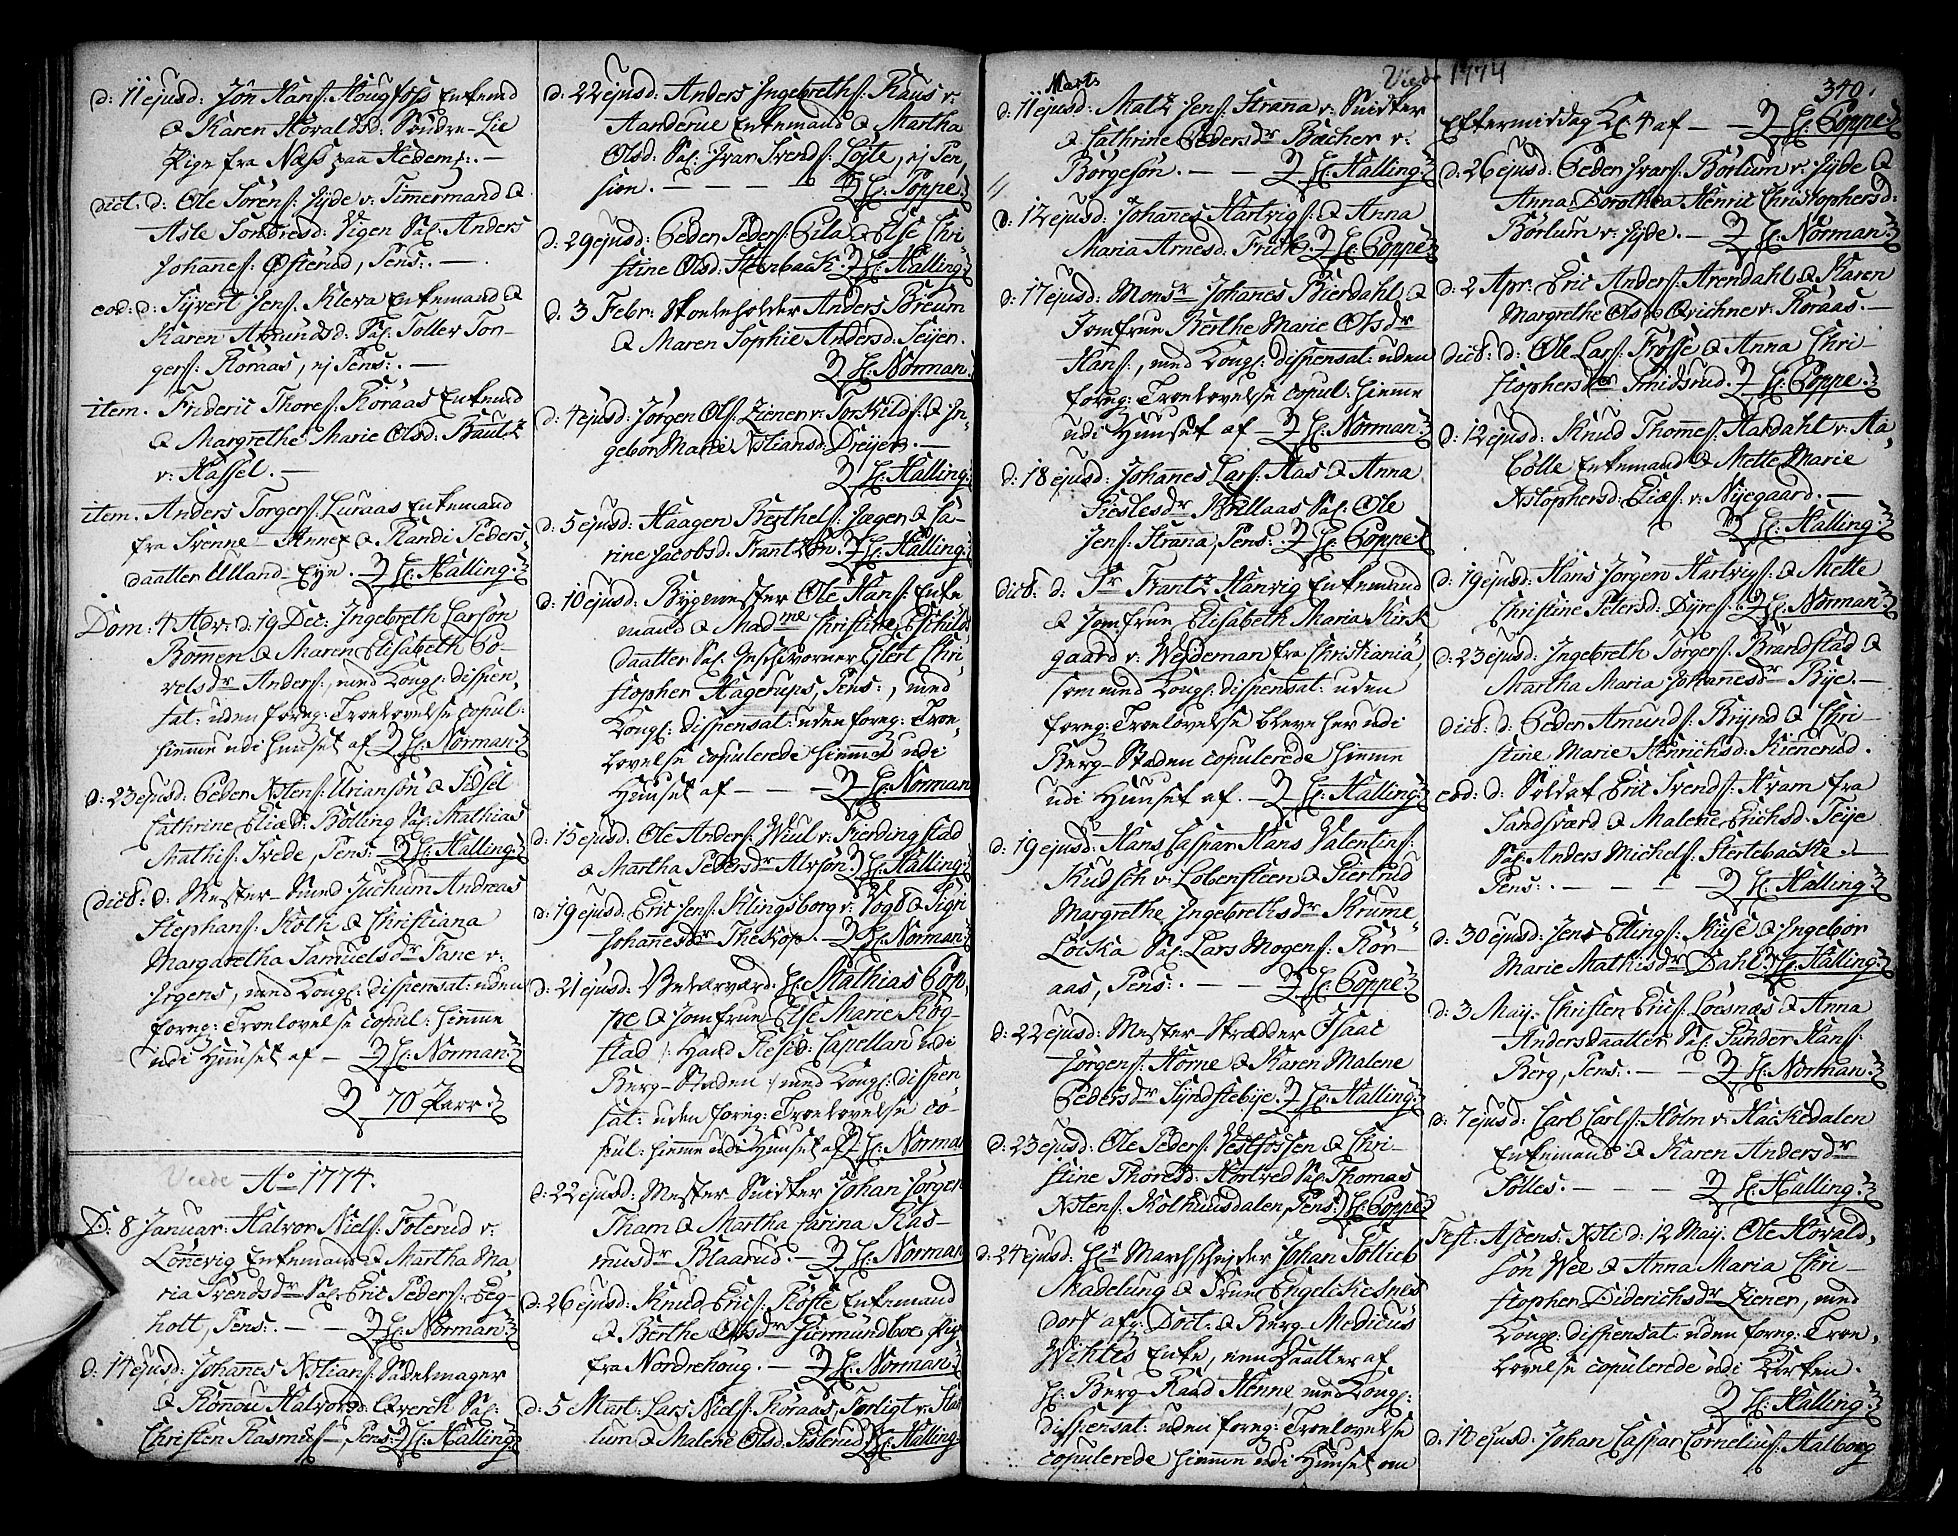 d: 11 ejusd: Jon Hans: Hougfoss Enkemd
& Karen Hovaldsd: Søndre-Lie
Pige fra Næss paa Hedem: . —
dict. d: Ole Sørens: Jyde v: Timmermand &
Asle Tondresd: Vigen Sal. Anders
Johannes: Østerud, Pens: . —
eod: d: Syvert Jens: Kleva Enkemand &
Karen Amundsd: Sal. Tollev Tor-
gers: Koraas, ej Pens: . —
item. Frideric Thores: Koraas Enkemd
& Margrethe Marie Olsd: Bautz
v: Hassel. —
item. Anders Torgers: Luraas Enkemand
fra Svenne-Annex & Randi Peders
daatter Ulland-Eye. H: Halling:
Dom: 4 Adv: d: 19 Dec: Ingebreth Larsøn
Bomen & Maren Elisabeth Po-
velsdr Anders:, med Kongl: dispen,
sat: uden foreg: Troelovelse copul:
hiemme udi Huuset af H: Norman:
d: 23 ejusd: Peder Nstens: Urianson & Sidsel
Cathrine Eliæd: Bølling Sal. Mathias
Mathis: Svede, Pens: H: Halling:
dict: d: Mester-Smed Juchum Andreas
Stephans: Koth & Christiana
Margaretha Samuelsdr Fane v:
Jrgens, med Kongl: dispensat: uden
foreg: Troelovelse copul: hiemme
udi Huuset af — H: Norman:
70 Parr
Viede Ao 1774.
D: 8 Januar: Halvor Niels: Foterud v:
Lønevig Enkemand & Martha Ma-
ria Svendsdr Sal. Eric Peders: Eeg-
holt, Pens: . — — H: Norman:
d: 14 ejusd: Johanes Nstians: Sadelmager
& Rønou Halvorsd: Qverck Sal:
Christen Rasmus:, Pens: H: Halling:
d: 22 ejusd: Anders Ingebreths: Raus v:
Aanderue Enkemand & Martha
Olsd: Sal. Ivar Svends: Løyte, ej Pen
sion. — — — — H: Poppe
d: 29 ejusd: Peder Peders: Pila & Else Chri
stine Olsd: Steenback. H: Halling:
d: 3 Febr: Skoeleholder Anders Breum
& Maren Sophie Andersd: Seijer.
H: Norman:
d: 4 ejusd: Jørgen Ols: Ziener v: Torkilds: & In-
gebor Marie Nstiansd: Dreyer. —
H: Halling:
d: 5 ejusd: Haagen Berthels: Jager & Ca-
rine Jacobsd: Frantzøn. H: Halling:
d: 10 ejusd: Bygemester Ole Hans: Enke
mand & Madme Christine Eschilds
daatter Sal. Geschvorner Glert Chri
stopher Hagerups, Pens:, med
Kongl: dispensat: uden foreg: Troe-
lovelse copulerede hiemme udi
Huuset af — — H: Norman
d: 15 ejusd: Ole Anders: Wiul v: Fierdingstad
& Martha Pedersdr Alvson. H: Halling:
d: 19 ejusd: Eric Jens: Klingsborg v: Vogt & Sigri
Johannesdr Thekop. — H: Norman:
d: 21 ejusd: Velærværd: H: Mathias Pop,
pe & Jomfrue Else Marie Rog-
stad /: Hand Resid: Capellan udi
Berg-Staden :/ med Kongl: dispen-
sat: uden foreg: Troelovelse co-
pul: hiemme udi Huuset af H: Norman
d: 22 ejusd: Mester Snicker Johan Jørgen
Tham & Martha Carina Ras-
musdr Blaarud. — H: Norman
d: 26 ejusd: Knud Erics: Koste Enkemand
& Berthe Olsdr Giermundboe Pige
fra Nordrehoug. — H: Norman:
d: 5 Mart: Lars Niels: Koraas, Sørligt v: Has
lum & Malene Olsd: Sisterud H: Halling
Marts Viede 1774
d: 11 ejusd: Matz Jens: Strana v: Snicker
& Cathrine Pedersdr Bacher v:
Børgesøn. — — H: Halling:
d: 12 ejusd: Johannes Hartvigs: & Anna
Maria Arnesd: Frick. H: Poppe
d: 17 ejusd: Monsr Johanes Bierdahl &
Jomfrue Berthe Marie Olsdr
Hans:, med Kongl: dispensat: uden
foreg: Troelovelse copul: hiemme
udi Huuset af — H: Norman:
d: 18 ejusd: Johannes Lars: Aas & Anna
Kieslesdr Krillaas Sal. Ole
Jens: Strana, Pens: . H: Poppe
dict: d: Sr Frantz Hanvig Enkemand
& Jomfrue Elisabeth Maria Kirk
gaard v: Weydeman fra Christiania,
som med Kongl: dispensat: uden
foreg: Troelovelse bleve her udi
Berg-Staden copulerede hiemme
udi Huuset af. — H: Halling:
d: 19 ejusd: Hans Caspar Hans Valentins:
Kudsch v: Lobensteen & Siertrud
Margrethe Ingebrethsdr Krume-
Løcka Sal. Lars Mogens: Kor-
aas, Pens: . — — H: Poppe
d: 22 ejusd: Mester Skrædder Isaac
Jørgens: Horne & Karen Malene
Pedersdr Syndstebye. H: Halling:
d: 23 ejusd: Ole Peders: Vestfossen & Chri-
stine Thoresd: Kortved Sal. Thomas
Nstens: Kolhuusdalen, Pens: H: Poppe
d: 24 ejusd: Hr Marchschejder Johan Gottlieb
Madelung & Frue Engelke Snes
dorf afg: Doct: & Berg-Medicus
Wichtes Enke, een Daatter af
H: Berg Raad Henne, med Kongl:
dispensat: uden foreg: Troelovelse
copulerede hiemme udi Huuset om
340.
Eftermiddag Kl. 4 af — H: Poppe
d: 26 ejusd: Peder Ivars: Børlum v: Jyde &
Anna Dorothea Henric Christophersd:
Børlum v: Jyde. — H: Norman:
d: 2 Apr: Eric Anders: Arendahl &: Karen
Margrethe Olsd: Qvichne v: Koraas. —
dict: d: Ole Lars: Frøsse & Anna Chri-
stophersdr Smidsrud. H: Poppe:
d: 12 ejusd: Knud Thomes: Aardahl v: Aa-
Cølle Enkemand & Mette Marie
Nstophersd: Eliæs: v: Nyegaard. —
H: Halling:
d: 19 ejusd: Hans Jørgen Hartvigs: & Mette
Christine Petersd: Dyres: H: Norman:
d: 23 ejusd: Ingebreth Torgers: Brandstad &
Martha Maria Johanesdr Bye. —
dict: d: Peder Amunds: Brynd & Chri-
stine Marie Henrichsd: Kienerud.
eod: d: Soldat Eric Svends: Kram fra
Sandsværd & Malene Erichsd: Teije
Sal. Anders Michels: Stertebacke
Pens: . — — — H: Halling:
d: 30 ejusd: Jens Ellings: Kise & Ingebor
Marie Mathisdr Dahl. H: Halling:
d: 3 May: Christen Erics: Loesnæs & Anna
Andersdaatter Sal. Gunder Hans:
Berg, Pens: . — — H: Norman:
d: 7 ejusd: Carl Carls: Holm v: Hackedalen
Enkemand & Karen Andersdr
Tolles. — — — H: Halling:
Fest: Ascens: Nsti d: 12 May: Ole Hovald,
søn Wee & Anna Maria Chri-
stopher Diderichsdr Ziener, med
Kongl: dispensat: uden foreg: Troe,
lovelse copulerede udi Kirken.
H: Halling:
d: 14 ejusd: Johan Caspar Cornelius: Aalborg